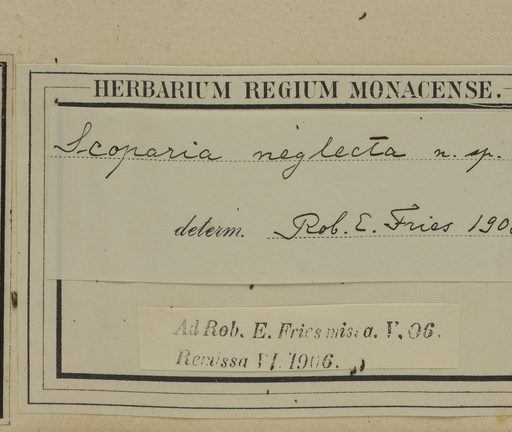 HERBARIUM REGIUM MONACENSE.
Scoparia neglecta n. sp.
determ. Rob. E. Fries
Ad Rob. E. Fries missa. V. 06.
Remissa VI. 1906.